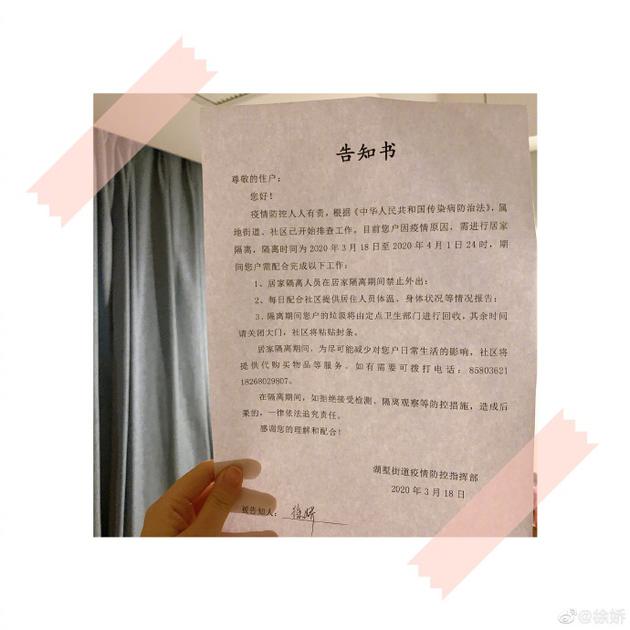 告知书
尊敬的住户：
您好！
疫情防控人人有责，根据《中华人民共和国传染病防治法》，属
地街道、社区已开始排查工作。目前您户因疫情原因，需进行居家
隔离，隔离时间为 2020 年 3 月 18 日至 2020 年 4 月 1 日 24 时，期
间您户需配合完成以下工作：
1、居家隔离人员在居家隔离期间禁止外出；
2、每日配合社区提供居住人员体温、身体状况等情况报告；
3、隔离期间您户的垃圾将由定点卫生部门进行回收，其余时间
请关闭大门，社区将粘贴封条。
居家隔离期间，为尽可能减少对您户日常生活的影响，社区将
提供代购买物品等服务。如有需要可拨打电话：85803621
18268029807。
在隔离期间，如拒绝接受检测、隔离观察等防控措施，造成后
果的，一律依法追究责任。
感谢您的理解和配合！
湖墅街道疫情防控指挥部
2020 年 3 月 18 日
被告知人：徐娇
@徐娇